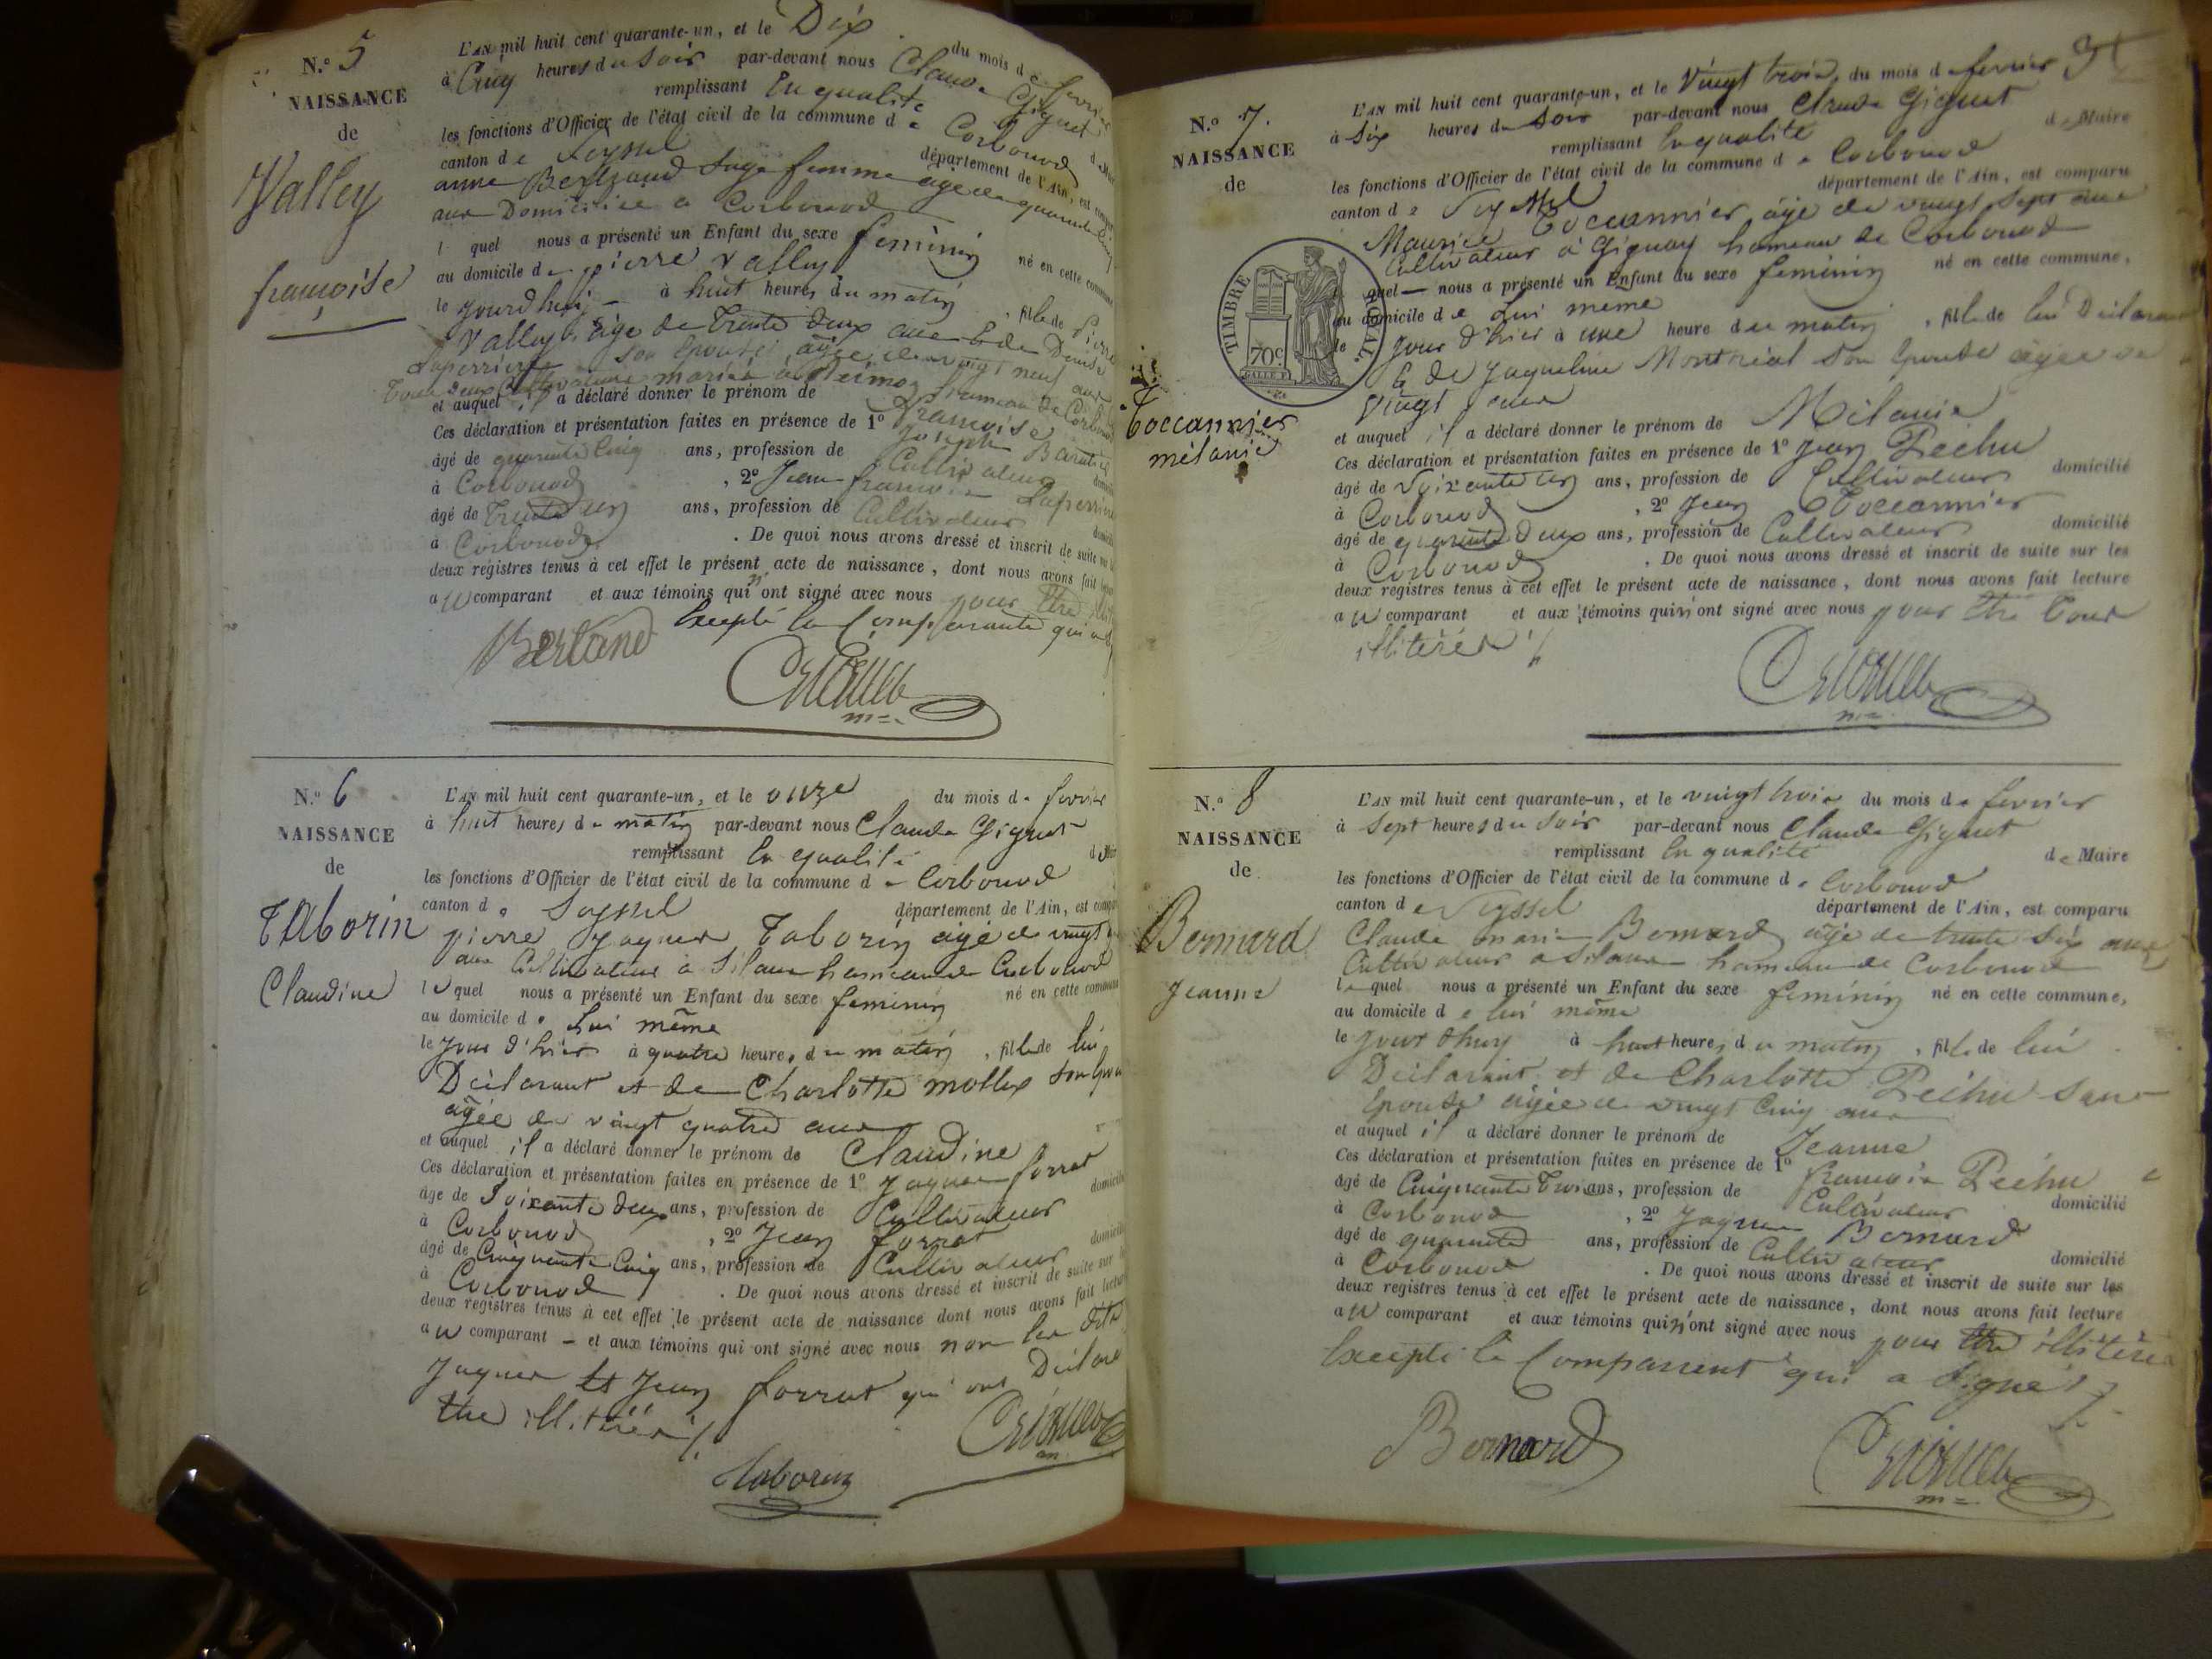 N.º 5
NAISSANCE
de
Valley
françoise
L'AN mil huit cent quarante-un, et le Dix du mois de fevrier
à Cinq heures du soir par-devant nous Claude Giguet
remplissant en qualité
les fonctions d'Officier de l'état civil de la commune de Corbonod
canton de Seyssel département de l'Ain, est
anne Bertrand sage femme agée de quarante cinq
ans Domiciliée a Corbonod
l quel nous a présenté un Enfant du sexe feminin né en cette commune
au domicile de pierre Valley
le jourd'hui à huit heures du matin , fille de Pierre
Valley âgé de trente deux ans et de Denise
Laperrière son épouse, agée de vingt neuf ans
tous deux Cultivateurs mariés a hameau de Corbonod
et auquel il a déclaré donner le prénom de françoise
Ces déclaration et présentation faites en présence de 1º joseph
âgé de quarante cinq ans, profession de Cultivateur
à Corbonod , 2º Jean françois Laperrière
âgé de trente un ans, profession de Cultivateur
à Corbonod . De quoi nous avons dressé et inscrit de suite
deux registres tenus à cet effet le présent acte de naissance, dont nous avons fait
au comparant et aux témoins qui n'ont signé avec nous pour être
Excepté la Comparante qui a
Bertrand
N.º 6
NAISSANCE
de
TAborin
Claudine
L'AN mil huit cent quarante-un, et le onze du mois de fevrier
à huit heures de matin par-devant nous Claude Giguet
remplissant en qualité
les fonctions d'Officier de l'état civil de la commune de Corbonod
canton de Seyssel département de l'Ain, est
pierre Jaques Taborin agé de vingt
ans Cultivateur a Silans hameau de Corbonod
le quel nous a présenté un Enfant du sexe feminin né en cette commune
au domicile de lui même
le jour d'hier à quatre heures du matin , fille de lui
Déclarant et de Charlotte mollex son
âgée de vingt quatre ans
et auquel il a déclaré donner le prénom de Claudine
Ces déclaration et présentation faites en présence de 1º Jaques forrat
âgé de Soixante deux ans, profession de Cultivateur
à Corbonod , 2º Jean forrat
âgé de Cinquante Cinq ans, profession de Cultivateur
à Corbonod . De quoi nous avons dressé et inscrit de suite sur
deux registres tenus à cet effet le présent acte de naissance dont nous avons fait
au comparant – et aux témoins qui ont signé avec nous non les dits
Jaques et Jean forrat qui ont Déclaré
être illitéres
Taborin
N.º 7.
NAISSANCE
de
TIMBRE ROYAL
70c
Toccannier
mélanie
L'AN mil huit cent quarante-un, et le Vingt trois du mois de fevrier
à Six heures du soir par-devant nous Claude Giguet
remplissant en qualité de Maire
les fonctions d'Officier de l'état civil de la commune de Corbonod
canton de Seyssel département de l'Ain, est comparu
Maurice Toccannier âgé de vingt sept ans
Cultivateur à Gignay hameau de Corbonod
quel — nous a présenté un Enfant du sexe feminin né en cette commune,
au domicile de lui même
le jour d'hier à une heure du matin , fille de lui Déclarant
& de Jaqueline Montréal son épouse âgée de
Vingt ans
et auquel il a déclaré donner le prénom de Mélanie
Ces déclaration et présentation faites en présence de 1º Jean Péchu
âgé de Soixante un ans, profession de Cultivateur domicilié
à Corbonod , 2º Jean Toccannier
âgé de quarante deux ans, profession de Cultivateur domicilié
à Corbonod . De quoi nous avons dressé et inscrit de suite sur les
deux registres tenus à cet effet le présent acte de naissance, dont nous avons fait lecture
au comparant et aux témoins qui n'ont signé avec nous pour être tous
illitérés
N.º 8
NAISSANCE
de
Bernard
jeanne
L'AN mil huit cent quarante-un, et le vingt trois du mois de fevrier
à Sept heures du soir par-devant nous Claude Giguet
remplissant en qualité de Maire
les fonctions d'Officier de l'état civil de la commune de Corbonod
canton de Seyssel département de l'Ain, est comparu
Claude marie Bernard âgé de trente six ans
Cultivateur a Silans hameau de Corbonod
le quel nous a présenté un Enfant du sexe feminin né en cette commune,
au domicile de lui même
le jour d'huy à huit heures du matin , fille de lui
Déclarant et de Charlotte Péchu son
épouse âgée de vingt cinq ans
et auquel il a déclaré donner le prénom de Jeanne
Ces déclaration et présentation faites en présence de 1º françois Péchu
âgé de Cinquante trois ans, profession de Cultivateur domicilié
à Corbonod , 2º Jaques Bernard
âgé de quarante ans, profession de Cultivateur domicilié
à Corbonod . De quoi nous avons dressé et inscrit de suite sur les
deux registres tenus à cet effet le présent acte de naissance, dont nous avons fait lecture
au comparant et aux témoins qui n'ont signé avec nous pour être illitérés
Excepté le Comparent qui a signé
Bernard